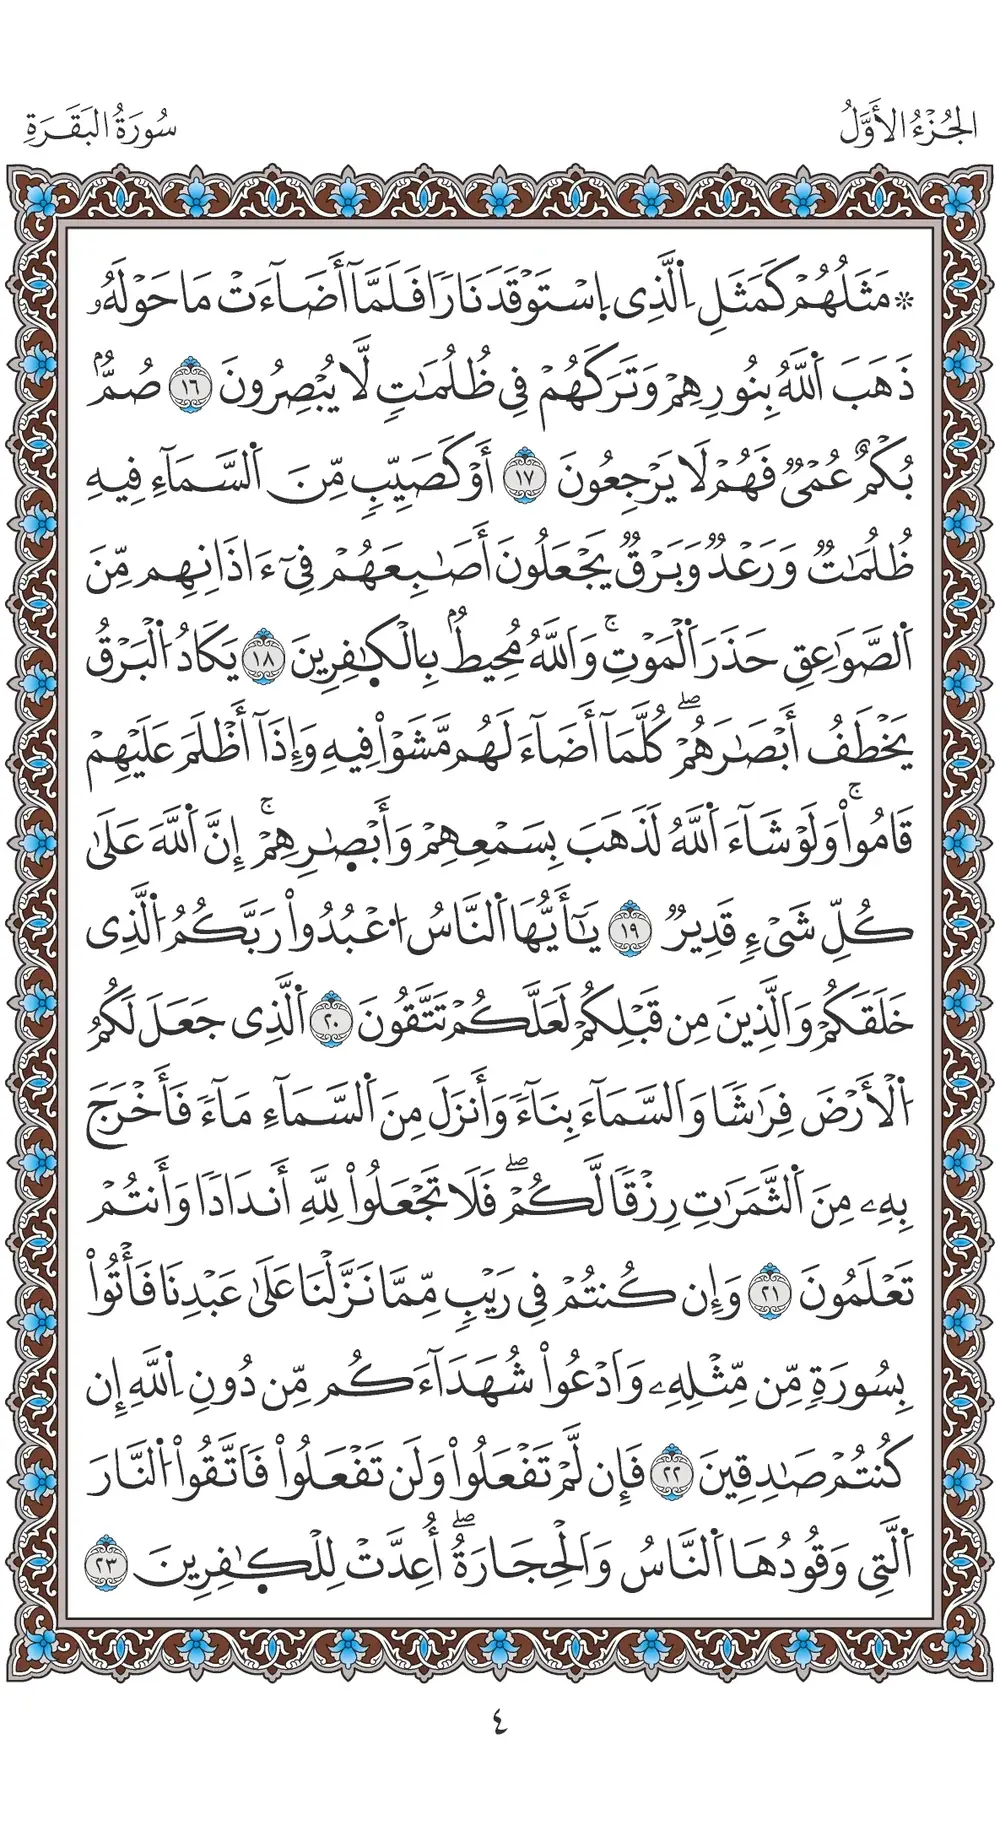 الجُزْءُ الأَوَّلُ
سُورَةُ البَقَرَةِ
۞ مَثَلُهُمْ كَمَثَلِ اِ۬لذِے اِ۪سْتَوْقَدَ نَارًا فَلَمَّآ أَضَآءَتْ مَا حَوْلَهُۥ
ذَهَبَ اَ۬للَّهُ بِنُورِهِمْ وَتَرَكَهُمْ فِي ظُلُمَٰتٍ لَّا يُبْصِرُونَ ١٦ صُمُّۢ
بُكْمٌ عُمْيٌ فَهُمْ لَا يَرْجِعُونَ ١٧ أَوْ كَصَيِّبٍ مِّنَ اَ۬لسَّمَآءِ فِيهِ
ظُلُمَٰتٌ وَرَعْدٌ وَبَرْقٌ يَجْعَلُونَ أَصَٰبِعَهُمْ فِيٓ ءَاذَانِهِم مِّنَ
اَ۬لصَّوَٰعِقِ حَذَرَ اَ۬لْمَوْتِۚ وَاللَّهُ مُحِيطٌۢ بِالْكٰ۪فِرِينَ ١٨ يَكَادُ اُ۬لْبَرْقُ
يَخْطَفُ أَبْصَٰرَهُمْۖ كُلَّمَآ أَضَآءَ لَهُم مَّشَوْاْ فِيهِ وَإِذَآ أَظْلَمَ عَلَيْهِمْ
قَامُواْۚ وَلَوْ شَآءَ اَ۬للَّهُ لَذَهَبَ بِسَمْعِهِمْ وَأَبْصٰ۪رِهِمْۚ إِنَّ اَ۬للَّهَ عَلَىٰ
كُلِّ شَيْءٍ قَدِيرٌ ١٩ يَٰٓأَيُّهَا اَ۬لنَّاسُ اُ۟عْبُدُواْ رَبَّكُمُ اُ۬لَّذِي
خَلَقَكُمْ وَالَّذِينَ مِن قَبْلِكُمْ لَعَلَّكُمْ تَتَّقُونَ ٢٠ اَ۬لَّذِي جَعَلَ لَكُمُ
اُ۬لْأَرْضَ فِرَٰشًا وَالسَّمَآءَ بِنَآءً وَأَنزَلَ مِنَ اَ۬لسَّمَآءِ مَآءً فَأَخْرَجَ
بِهِۦ مِنَ اَ۬لثَّمَرَٰتِ رِزْقًا لَّكُمْۖ فَلَا تَجْعَلُواْ لِلَّهِ أَندَادًا وَأَنتُمْ
تَعْلَمُونَ ٢١ وَإِن كُنتُمْ فِي رَيْبٍ مِّمَّا نَزَّلْنَا عَلَىٰ عَبْدِنَا فَأْتُواْ
بِسُورَةٍ مِّن مِّثْلِهِۦ وَادْعُواْ شُهَدَآءَكُم مِّن دُونِ اِ۬للَّهِ إِن
كُنتُمْ صَٰدِقِينَ ٢٢ فَإِن لَّمْ تَفْعَلُواْ وَلَن تَفْعَلُواْ فَاتَّقُواْ اُ۬لنَّارَ
اَ۬لَّتِي وَقُودُهَا اَ۬لنَّاسُ وَالْحِجَارَةُۖ أُعِدَّتْ لِلْكٰ۪فِرِينَ ٢٣
٤